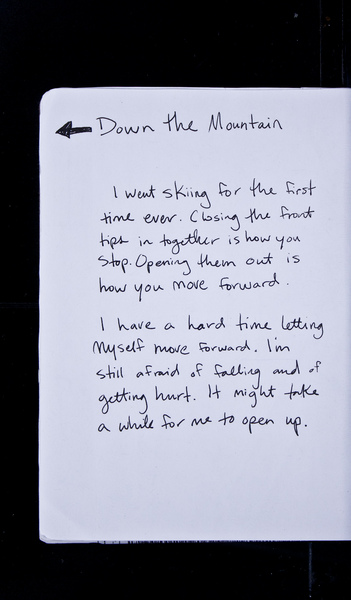 Down the Mountain
I went skiing for the first
time ever. Closing the front
tips in together is how you
stop. Opening them out is
how you move forward.
I have a hard time letting
myself move forward. I'm
still afraid of falling and of
getting hurt. It might take
a while for me to open up.